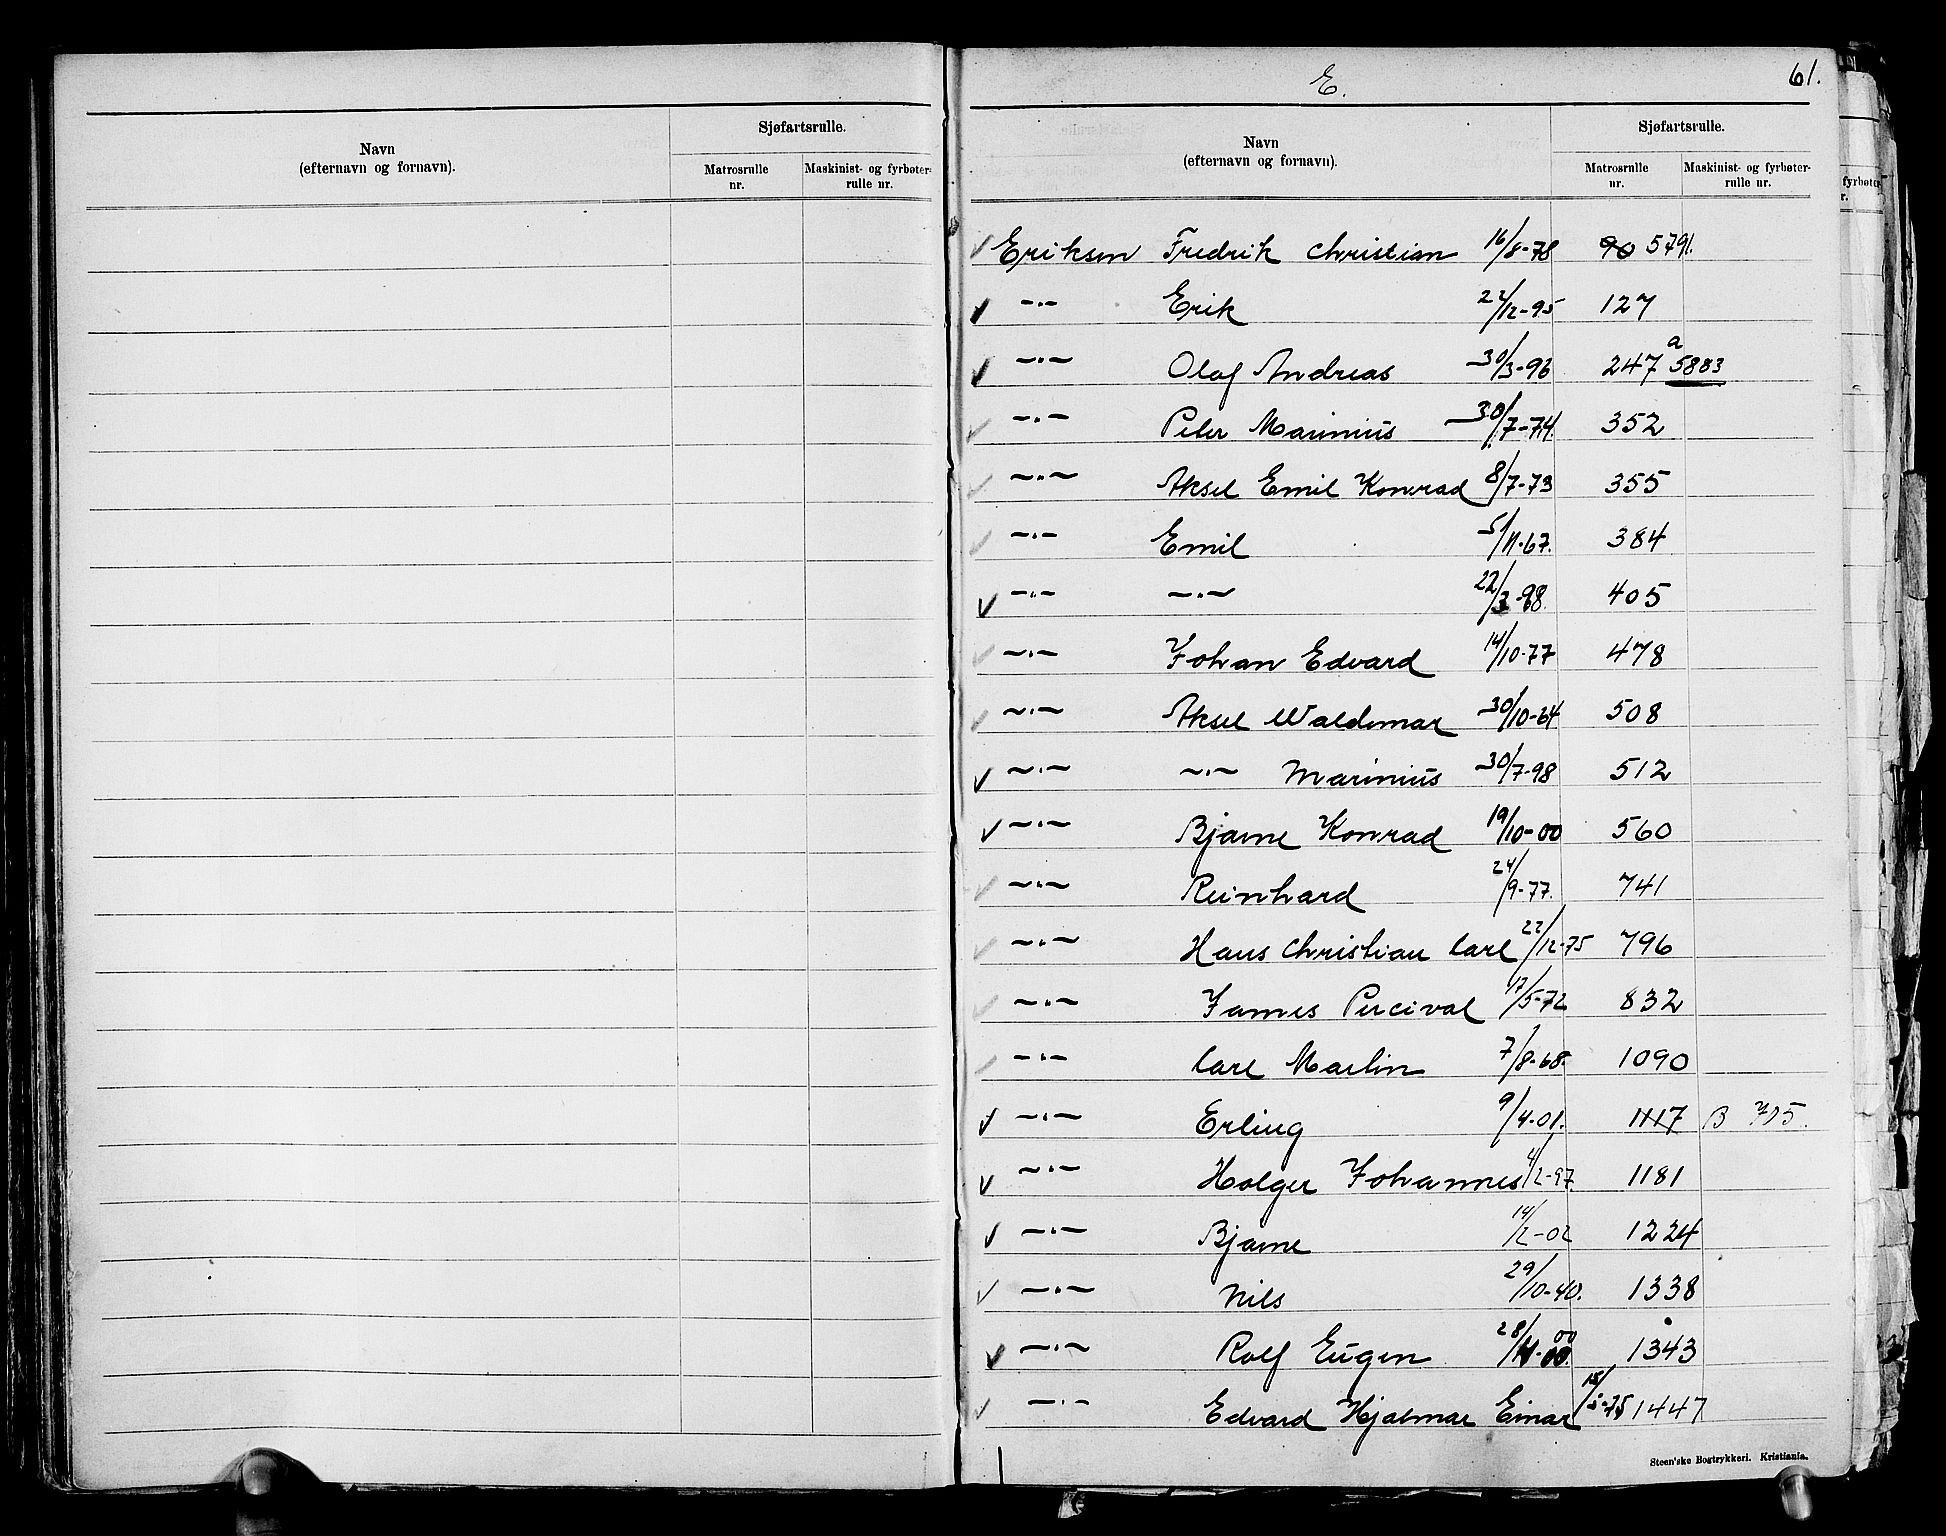 Navn
(efternavn og fornavn).
Sjøfartsrulle.
Matrosrulle nr.
Maskinist- og fyrbøter-rulle nr.
E.
61.
Navn
(efternavn og fornavn).
Sjøfartsrulle.
Matrosrulle nr.
Maskinist- og fyrbøter-rulle nr.
Eriksen Fredrik Christian 16/8-78 90 5791.
—"— Erik 22/12-95 127
—"— Olaf Andreas 30/3-96 247 a 5883
—"— Peter Marinius 30/7-74. 352
—"— Aksel Emil Konrad 8/7-73 355
—"— Emil 5/11-67. 384
—"— —"— 22/3-98. 405
—"— Johan Edvard 14/10-77 478
—"— Aksel Waldemar 30/10-64 508
—"— —"— Marinius 30/7-98 512
—"— Bjarne Konrad 19/10-00 560
—"— Reinhard 24/9-77. 741
—"— Hans Christian Carl 22/12-75 796
—"— James Percival 17/5-72 832
—"— Carl Martin 7/8-68. 1090
—"— Erling 9/4-01. 1117 B 715.
—"— Holger Johannes 4/2-97. 1181
—"— Bjarne 14/2-02 1224
—"— Nils 29/10-40. 1338
—"— Rolf Eugen 28/11-00 1343
—"— Edvard Hjalmar Einar 1447
Steen'ske Bogtrykkeri. Kristiania.